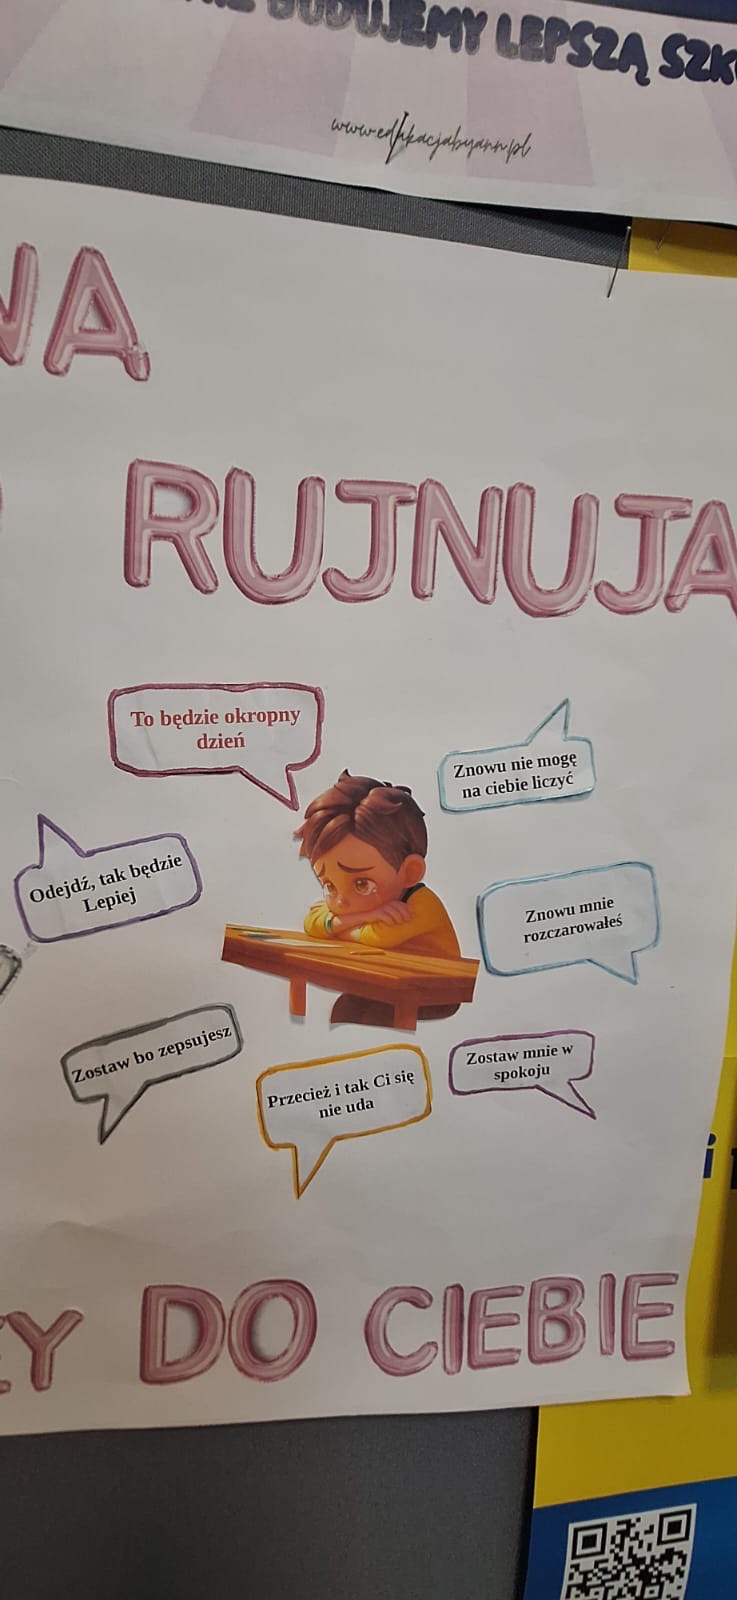 BUDUJEMY LEPSZĄ SZK
www.edukacjabyann.pl
NA
RUJNUJĄ
To będzie okropny
dzień
Znowu nie mogę
na ciebie liczyć
Odejdź, tak będzie
Lepiej
Znowu mnie
rozczarowałeś
Zostaw bo zepsujesz
Przecież i tak Ci się
nie uda
Zostaw mnie w
spokoju
ŻY DO CIEBIE